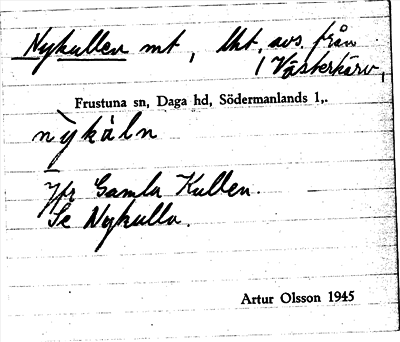 Nykullen mt, lht. avs. från
1 Västerkärv,
Frustuna sn, Daga hd, Södermanlands l,.
nỳkúln
Jfr Gamla Kullen.
Se Nykulla.
Artur Olsson 1945